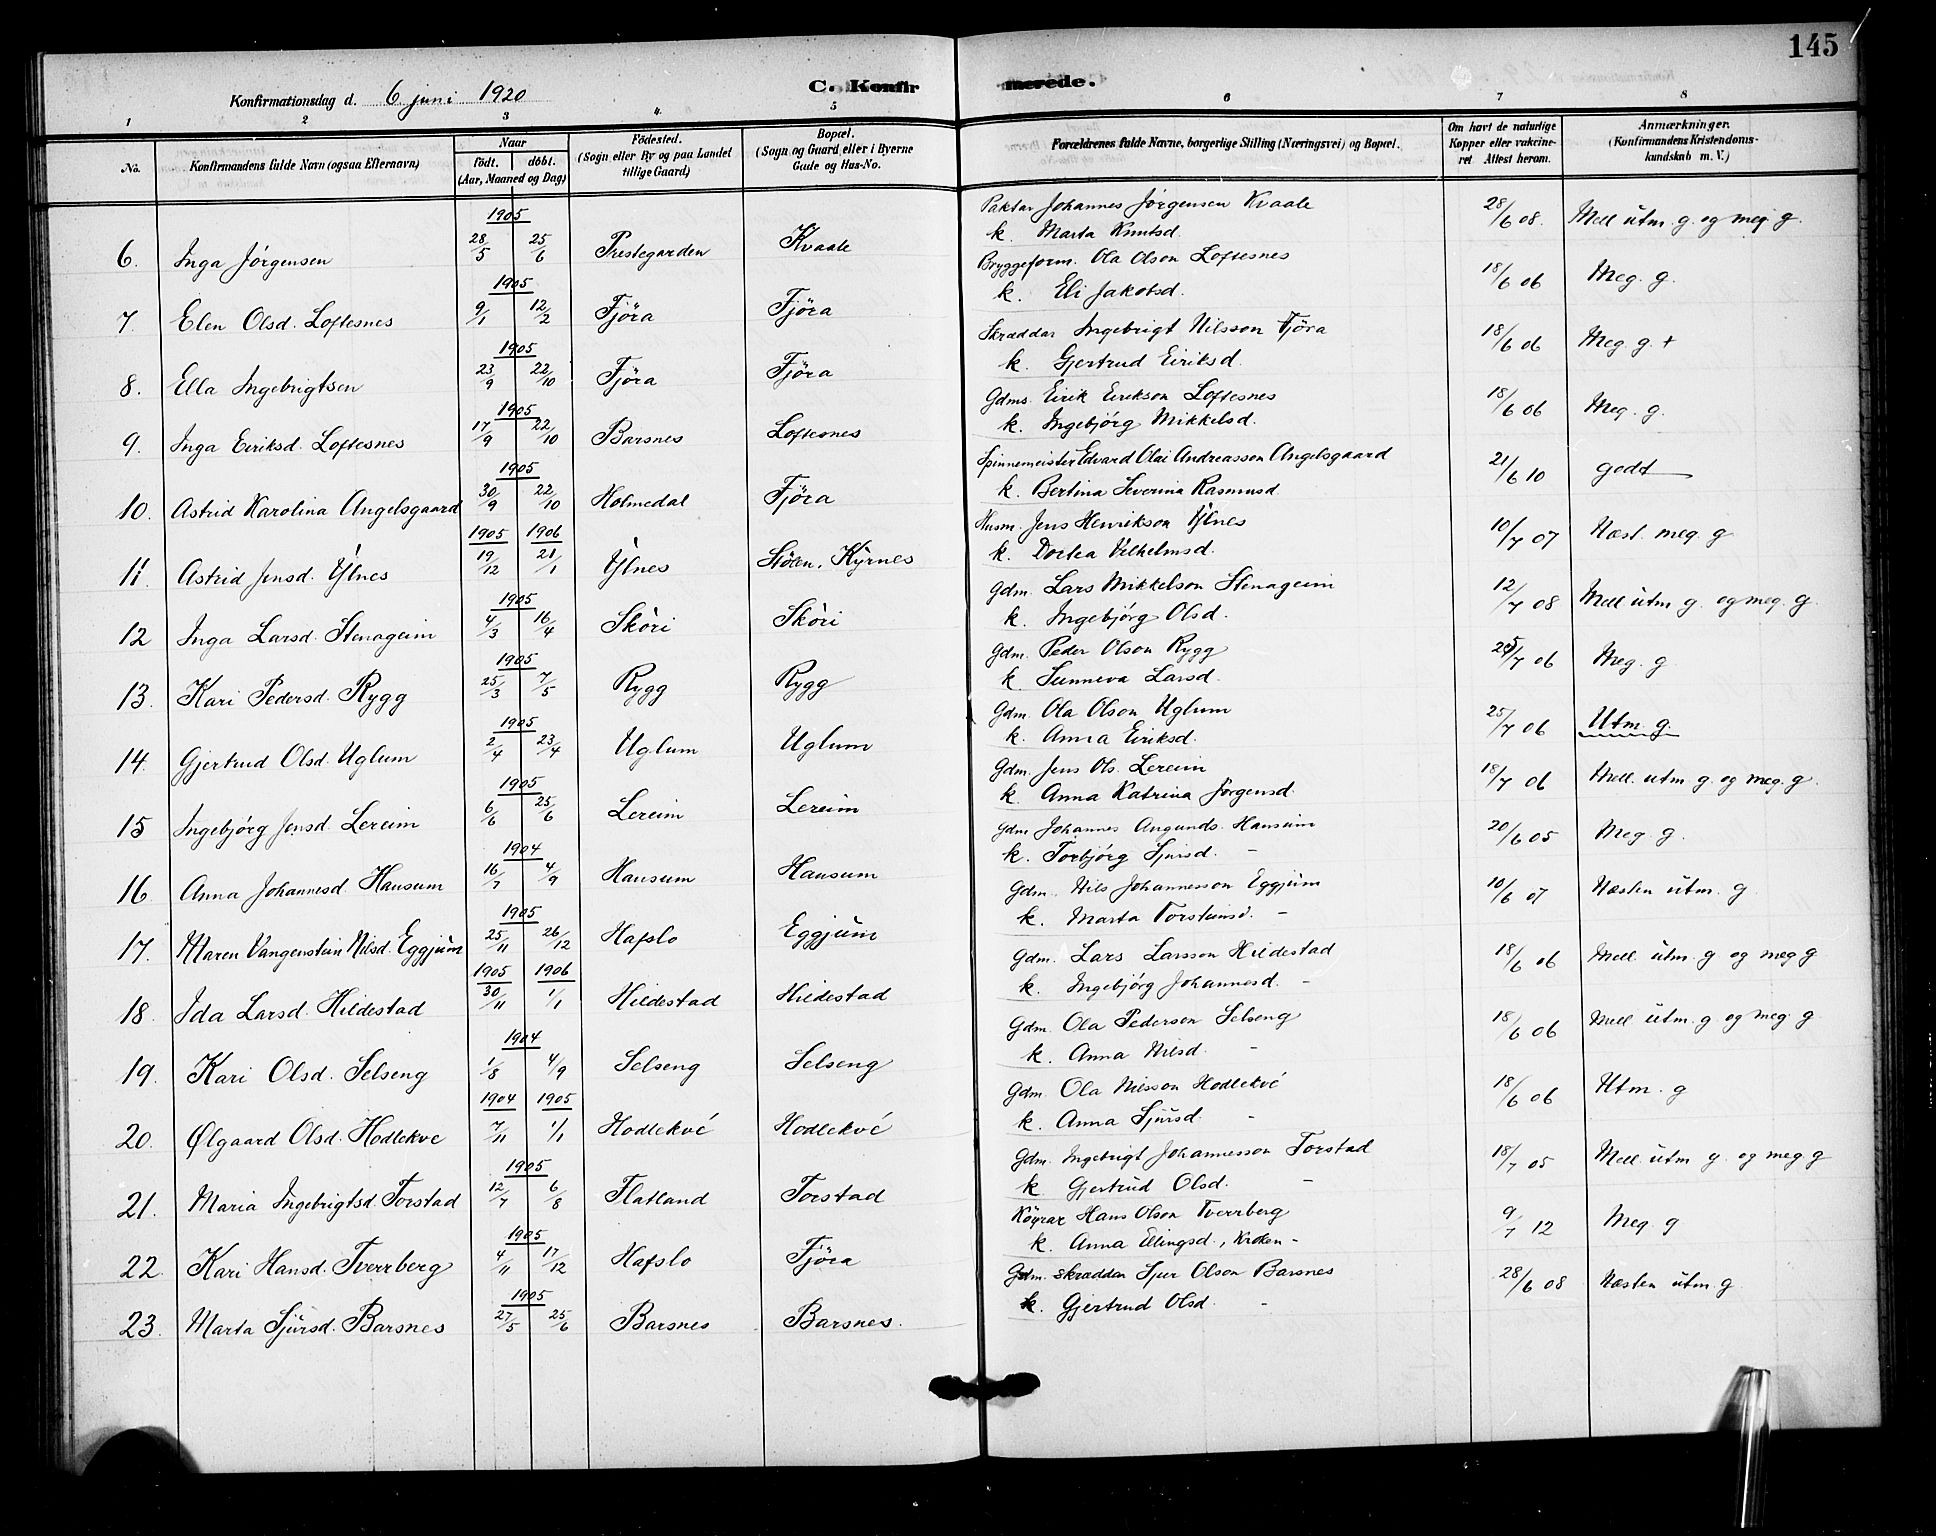 145
Konfirmationsdag d. 6. juni 1920
C. Konfirmerede.
1 2 3 4 5 6 7 8
No.
Konfirmandens fulde Navn (ogsaa Efternavn)
Naar
födt. döbt.
(Aar, Maaned og Dag)
Födested.
(Sogn eller By og paa Landet tillige Gaard)
Bopæl.
(Sogn og Gaard eller i Byerne Gade og Hus-No.
Forældrenes fulde Navne, borgerlige Stilling (Næringsvei) og Bopæl.
Om havt de naturlige Kopper eller vakcineret Attest herom.
Anmærkninger.
(Konfirmandens Kristendomskundskab m. V.)
6. Inga Jørgensen 1905 28/5 25/6 Prestegarden Kvaale Paktar Johannes Jørgensen Kvaale 28/6 08. Mell utm g. og meg g.
k. Marta Knutsd.
7. Elen Olsd. Loftesnes 1905 9/1 12/2 Fjöra Fjöra Bryggeform. Ola Olson Loftesnes 18/6 06 Meg. g.
k. Eli Jakobsd.
8. Ella Ingebrigtsen 1905 23/9 22/10 Fjöra Fjöra Skræddar Ingebrigt Nilsson Fjöra 18/6 06 Meg. g. +
k. Gjertrud Eiriksd.
9. Inga Eiriksd. Loftesnes 1905 17/9 22/10 Barsnes Loftesnes Gdms. Eirik Eirikson Loftesnes 18/6 06 Meg. g.
k. Ingebjörg Mikkelsd.
10. Astrid Karolina Angelsgaard 1905 30/9 22/10 Holmedal Fjöra Spinnemeister Edvard Olai Andreasson Angelsgaard 21/6 10 godt
k. Bertina Severina Rasmusd.
11. Astrid Jensd. Ylnes 1905 19/12 1906 21/1 Ylnes Stölen, Kyrnes Husm. Jens Henrikson Ylnes 10/7 07 Næst. meg. g
k. Dortea Vilhelmsd.
12 Inga Larsd. Stenageim 1905 4/3 16/4 Sköri Sköri Gdm. Lars Mikkelson Stenageim 12/7 08 Mell utm g. og meg. g.
k. Ingebjörg Olsd.
13. Kari Pedersd. Rygg 1905 25/3 7/5 Rygg Rygg Gdm. Peder Olson Rygg 25/7 06 Meg. g
k. Sunneva Larsd.
14. Gjertrud Olsd. Uglum 1905 2/4 23/4 Uglum Uglum Gdm. Ola Olson Uglum 25/7 06 Utm. g.
k. Anna Eiriksd.
15 Ingebjörg Jensd. Lereim 1905 6/6 25/6 Lereim Lereim Gdm. Jens Ols. Lereim 18/7 06 Mell. utm g. og meg. g.
k. Anna Katrina Jörgensd.
16 Anna Johannesd. Hansum 1904 16/7 4/9 Hansum Hansum Gdm Johannes Angunds. Hansum 20/6 05 Meg. g.
k. Torbjörg Sjursd. -
17. Maren Vangenstein Nilsd. Eggjum 1905 25/11 26/12 Hafslo Eggjum Gdm. Nils Johannesson Eggjum 10/6 07 Næsten utm. g
k. Marta Torsteinsd. -
18. Ida Larsd. Hildestad 1905 30/11 1906 1/1 Hildestad Hildestad Gdm. Lars Larsson Hildestad 18/6 06 Mell. utm. g og meg g
k. Ingebjörg Johannesd. -
19. Kari Olsd. Selseng 1904 1/8 4/9 Selseng Selseng Gdm. Ola Pederson Selseng 18/6 06 Mell utm. g og meg. g
k. Anna Nilsd. -
20. Ølgaard Olsd. Hodlekve 1904 7/11 1905 1/1 Hodlekvé Hodlekvé Gdm. Ola Nilsson Hodlekvé 18/6 06 Utm. g
k. Anna Sjursd. -
21. Maria Ingebrigtsd. Torstad 1905 12/7 6/8 Flatland Torstad Gdm. Ingebrigt Johannesson Torstad 18/7 05 Mell. utm g. og meg. g
k Gjertrud Olsd. -
22. Kari Hansd. Tverrberg 1905 4/11 17/12 Hafslo Fjöra Köyrar Hans Olson Tverrberg 9/7 12 Meg. g
k. Anna Ellingsd., Kroken -
23. Marta Sjursd. Barsnes 1905 27/5 25/6 Barsnes Barsnes. Gdm. skraddar Sjur Olson Barsnes 28/6 08 Næsten utm. g
k. Gjertrud Olsd. -